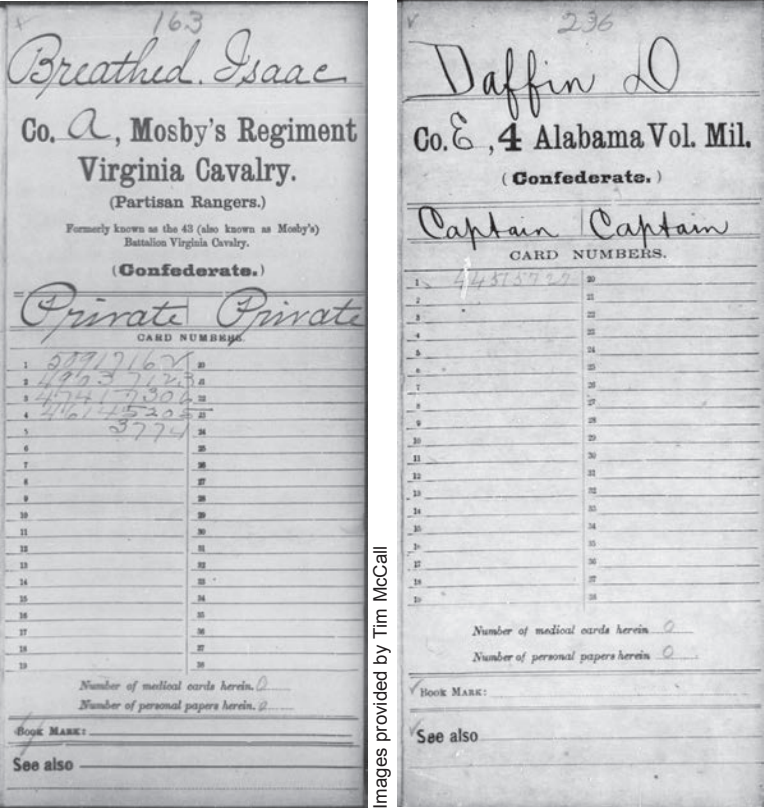 163
Breathed, Isaac
Co. A, Mosby's Regiment
Virginia Cavalry.
(Partisan Rangers.)
Formerly known as the 43 (also known as Mosby's)
Battalion Virginia Cavalry.
(Confederate.)
Private Private
CARD NUMBERS.
1 20
2 21
3 22
4 23
5 3774 24
6 25
7 26
8 27
9 28
10 29
11 30
12 31
13 32
14 33
15 34
16 35
17 36
18 37
19 38
Number of medical cards herein. 0
Number of personal papers herein. 0
Book Mark:
See also
Images provided by Tim McCall
236
Daffin D
Co. E, 4 Alabama Vol. Mil.
(Confederate.)
Captain Captain
CARD NUMBERS.
1 20
2 21
3 22
4 23
5 24
6 25
7 26
8 27
9 28
10 29
11 30
12 31
13 32
14 33
15 34
16 35
17 36
18 37
19 38
Number of medical cards herein 0
Number of personal papers herein 0
Book Mark:
See also